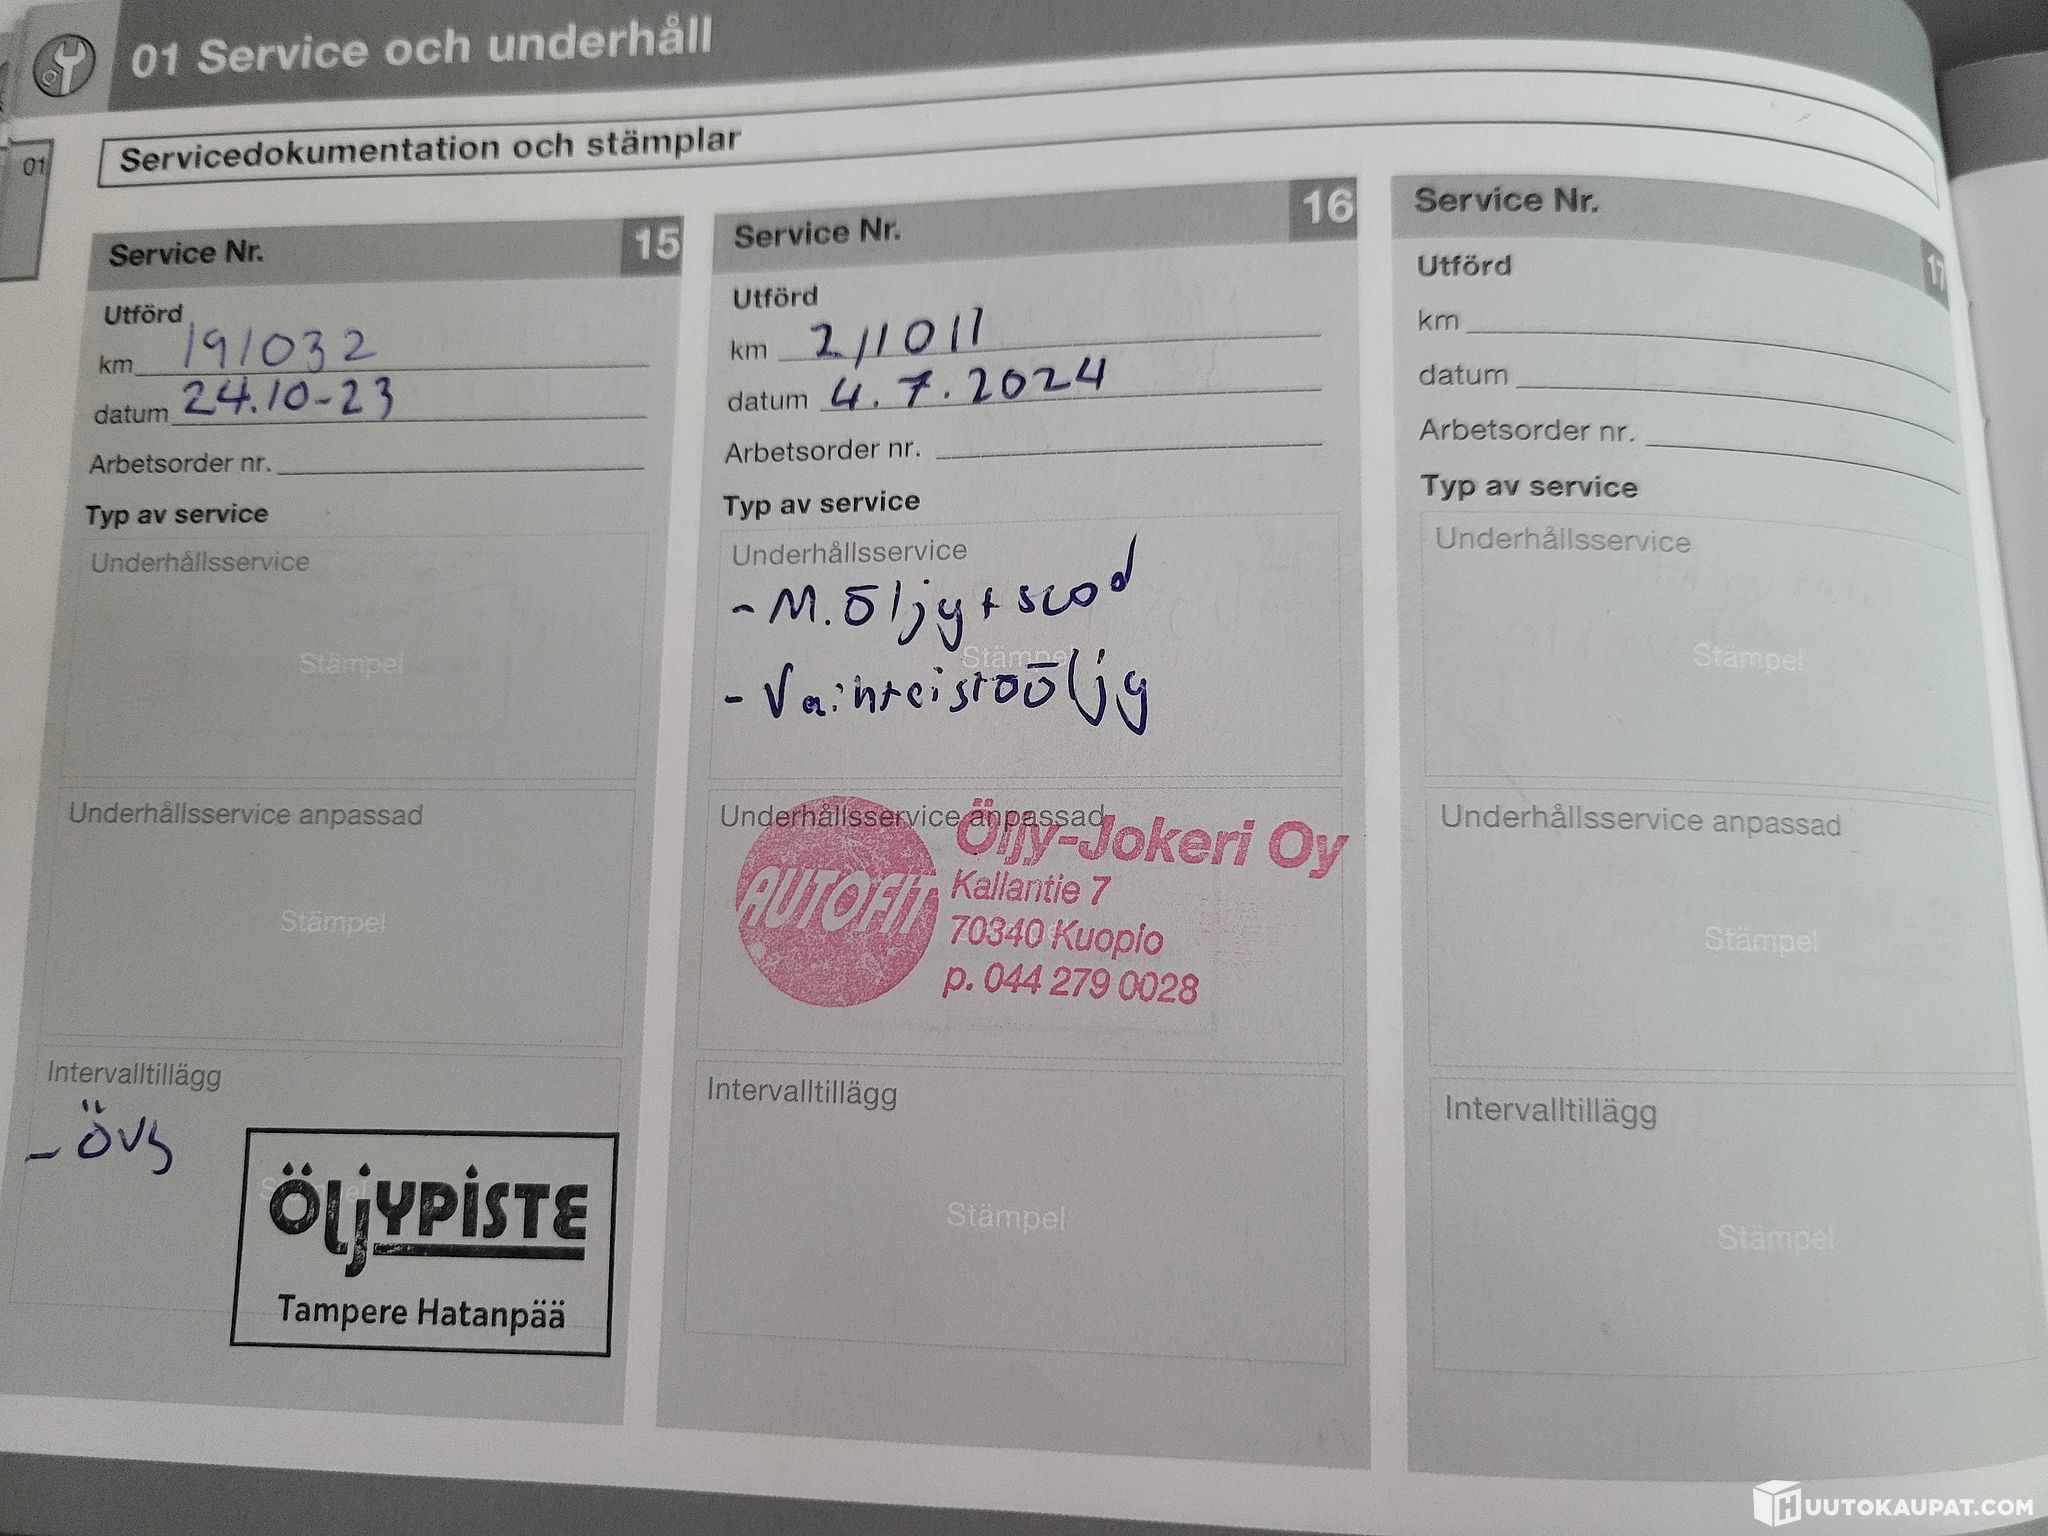 01 Service och underhåll
01
Servicedokumentation och stämplar
Service Nr. 15
Utförd
km 191032
datum 24.10-23
Arbetsorder nr.
Typ av service
Underhållsservice
Stämpel
Underhållsservice anpassad
Stämpel
Intervalltillägg
- ÖVS
ÖLJYPISTE
Tampere Hatanpää
Service Nr. 16
Utförd
km 211011
datum 4.7.2024
Arbetsorder nr.
Typ av service
Underhållsservice
- M.Öljy +
Stämpel
- Vaihteistoöljy
Underhållsservice anpassad
AUTOFIT
Öljy-Jokeri Oy
Kallantie 7
70340 Kuopio
p. 044 279 0028
Intervalltillägg
Stämpel
Service Nr. 17
Utförd
km
datum
Arbetsorder nr.
Typ av service
Underhållsservice
Stämpel
Underhållsservice anpassad
Stämpel
Intervalltillägg
Stämpel
HUUTOKAUPAT.COM